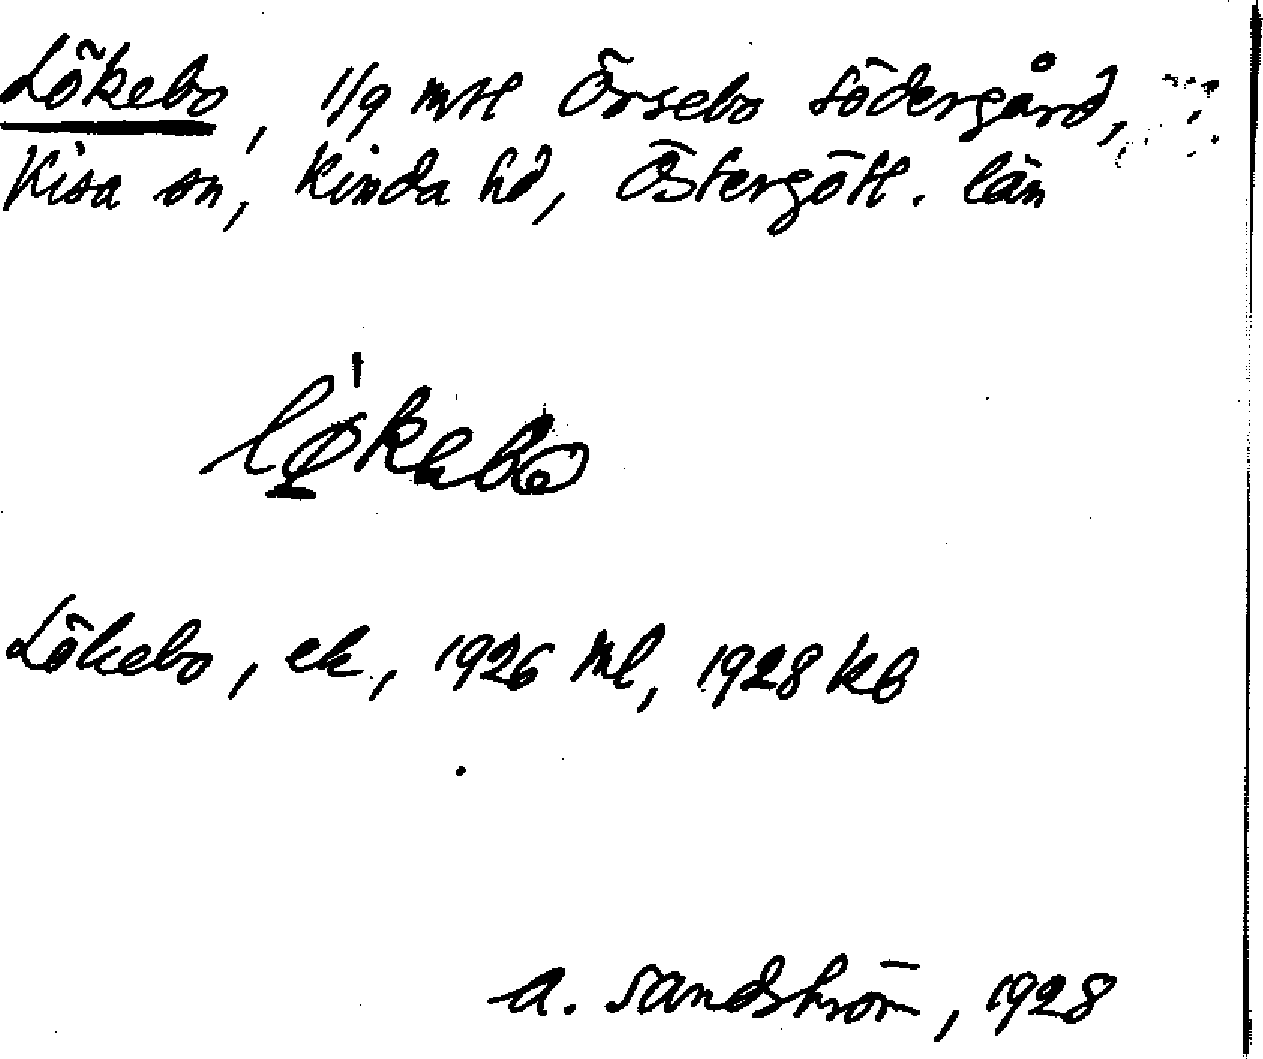 Lökebo, 1/9 mtl Örsebo Södergård,
Kisa sn, Kinda hd, Östergötl. län
løkebo
Lökebo, ek, 1926 Ml, 1928 kb
A. Sandström, 1928